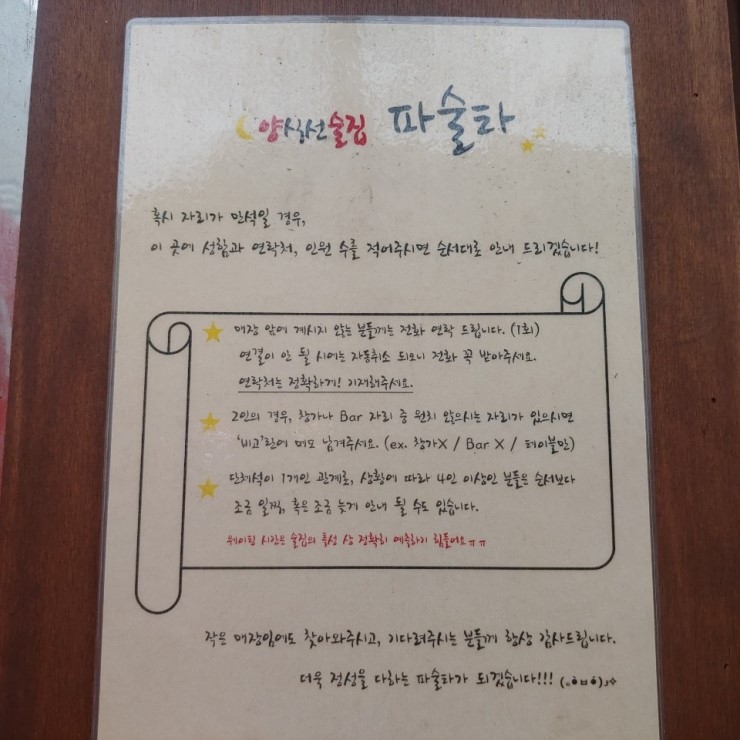 양식선술집 파술타
혹시 자리가 만석일 경우,
이 곳에 성함과 연락처, 인원 수를 적어주시면 순서대로 안내 드리겠습니다!
매장 앞에 계시지 않는 분들께는 전화 연락 드립니다. (1회)
연결이 안 될 시에는 자동취소 되오니 전화 꼭 받아주세요.
연락처는 정확하게! 기재해주세요.
2인의 경우, 창가나 Bar 자리 중 원치 않으시는 자리가 있으시면
'비고'란에 메모 남겨주세요. (ex. 창가X / Bar X / 테이블만)
단체석이 1개인 관계로, 상황에 따라 4인 이상인 분들은 순서보다
조금 일찍, 혹은 조금 늦게 안내 될 수도 있습니다.
웨이팅 시간은 술집의 특성 상 정확히 예측하기 힘들어요ㅠㅠ
작은 매장임에도 찾아와주시고, 기다려주시는 분들께 항상 감사드립니다.
더욱 정성을 다하는 파술타가 되겠습니다!!! (｡•̀ㅂ•́)و✧